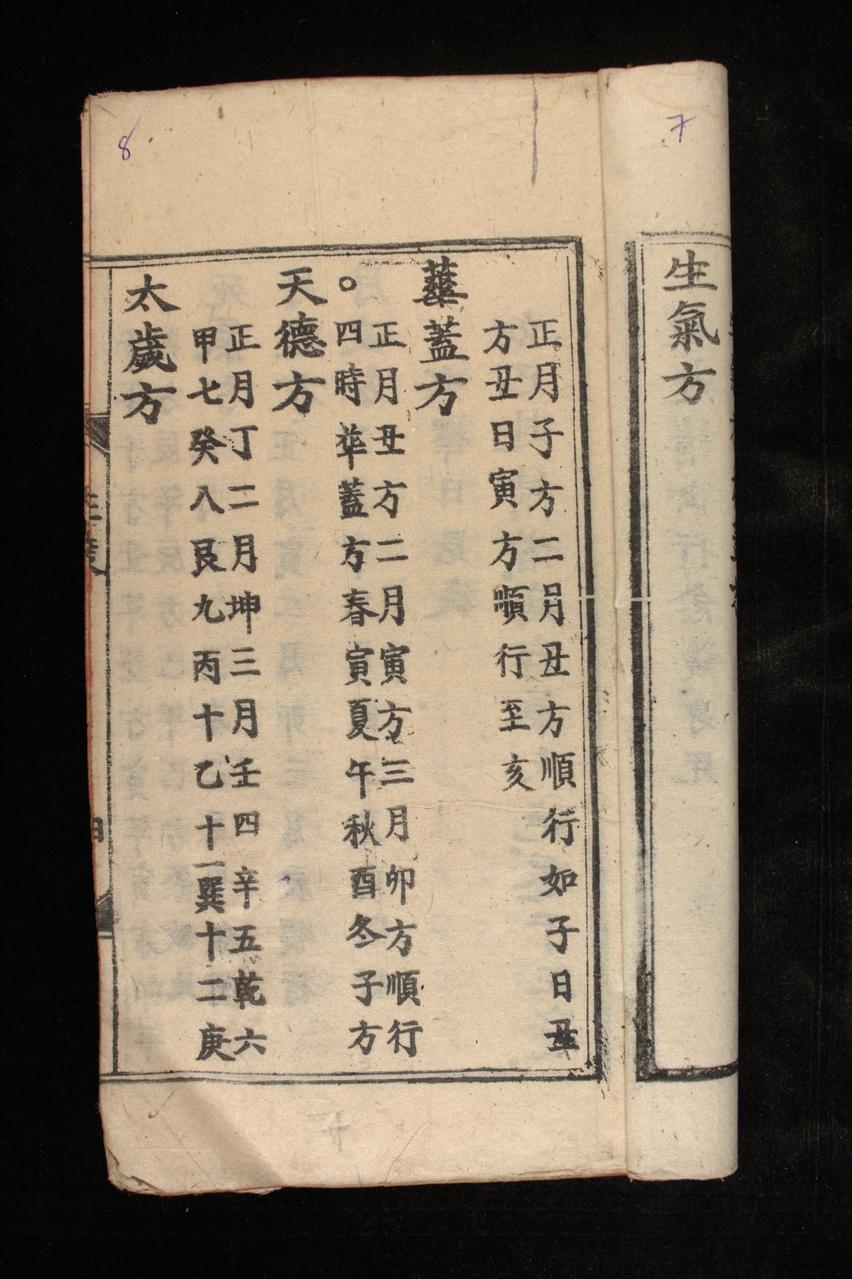 7
生氣方
8
正月子方二月丑方順行如子日丑
方丑日寅方順行至亥
華蓋方
正月丑方二月寅方三月卯方順行
○四時華蓋方春寅夏午秋酉冬子方
天德方
正月丁二月坤三月壬四辛五乾六
甲七癸八艮九丙十乙十一巽十二庚
太歲方